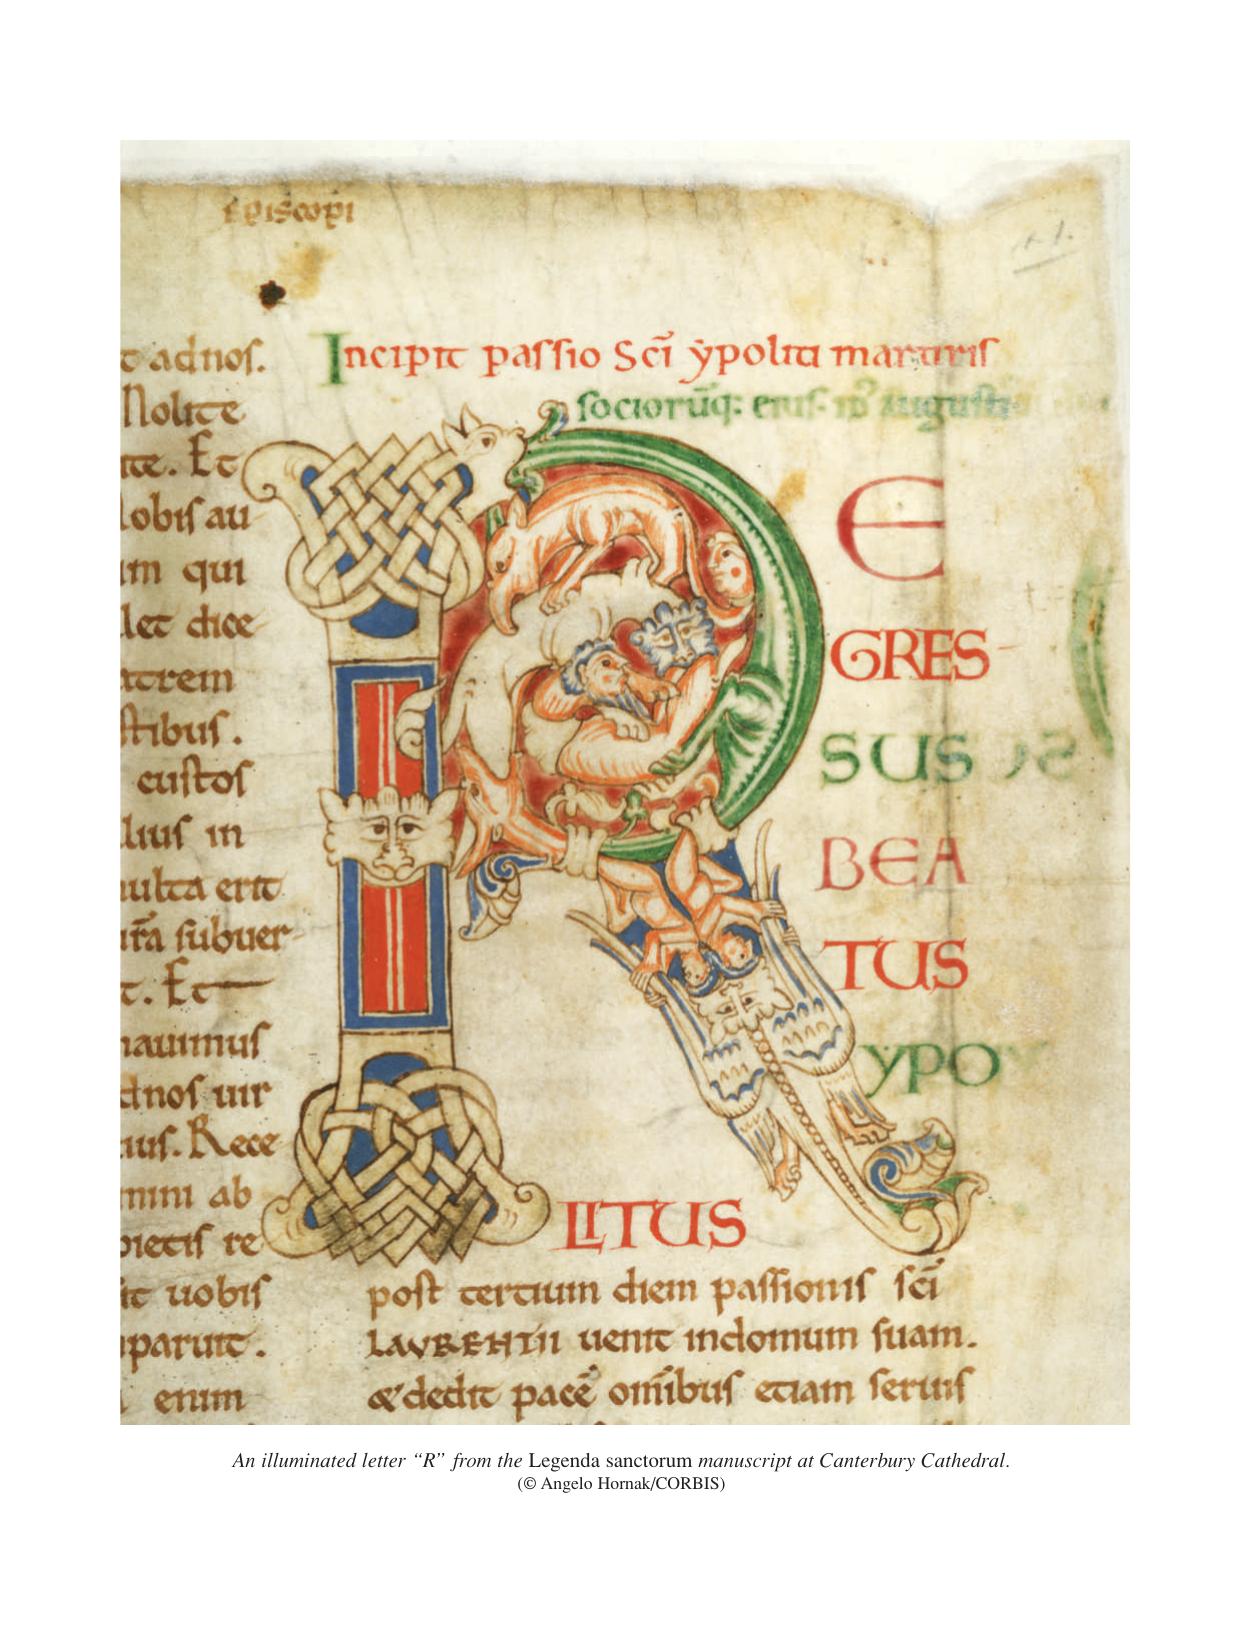 Episcopi
t adnos.
Nolite
te. Et
lobis au
m qui
let dice
trem
stibus.
custos
lius in
multa erit
subuer-
t. Et
nauimus
dnos uir
uus. Rece
mini ab
re
it uobis
paruit.
enim
Incipit passio Scī ẏpoliti martiris
sociorūq: eius. augusti
R
E
GRES-
SUS
BEA
TUS
YPO
LITUS
post tertium diem passionis scī
LAVRENTII uenit indomum suam.
& dedit pacē om̄ibus etiam seruis
An illuminated letter “R” from the Legenda sanctorum manuscript at Canterbury Cathedral.
(© Angelo Hornak/CORBIS)